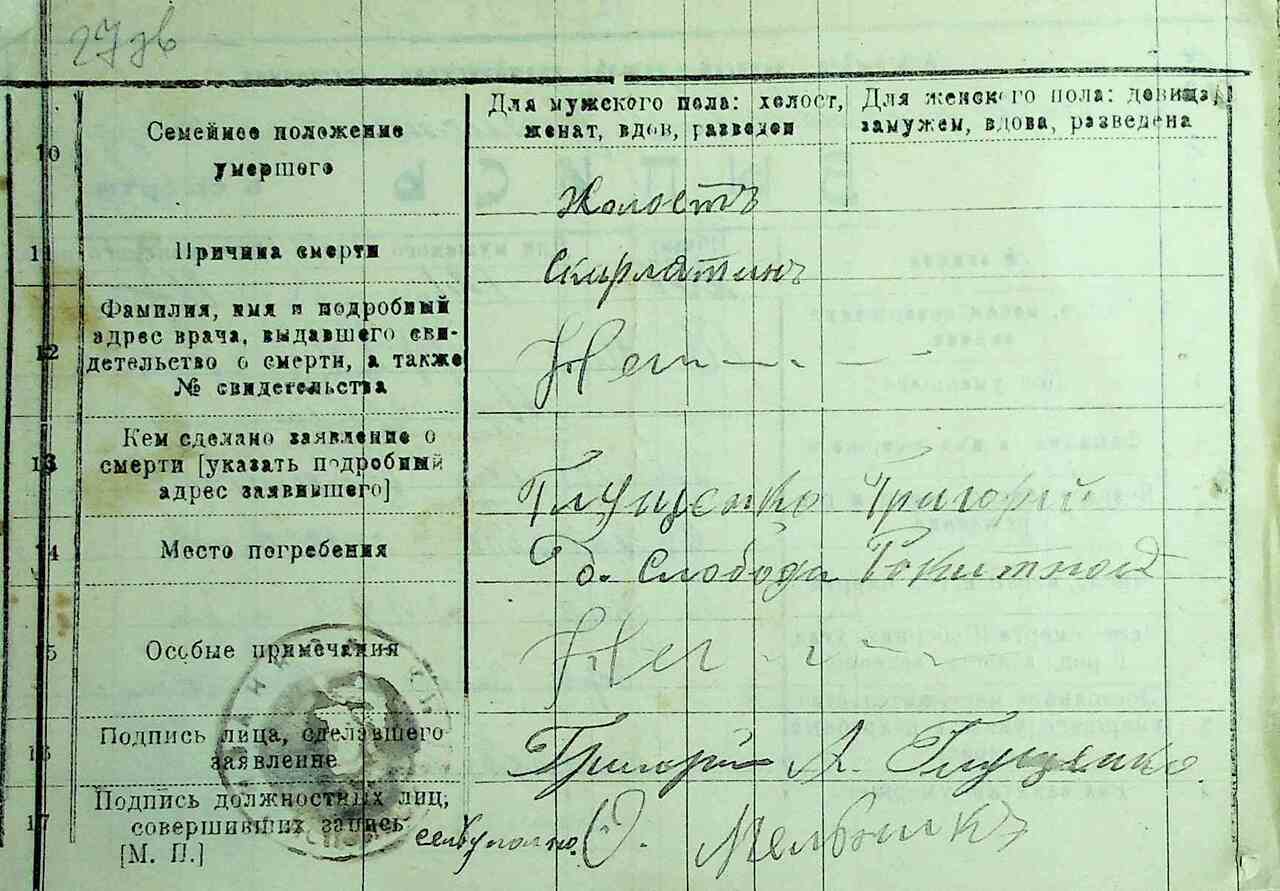 27
10
Семейное положение
умершего
Для мужского пола: холост,
женат, вдов, разведен
Для женского пола: девица,
замужем, вдова, разведена
Холостъ
11
Причина смерти
Скарлатинъ
12
Фамилия, имя и подробный
адрес врача, выдавшего сви-
детельство о смерти, а также
№ свидетельства
Нет
13
Кем сделано заявление о
смерти [указать подробный
адрес заявившего]
Глущенко Григорий
14
Место погребения
слобода Рокитной
15
Особые примечания
Нет
16
Подпись лица, сделавшего
заявление
Григорий А. Глущенко
17
Подпись должностных лиц,
совершивших запись
[М. П.]
О. Мельникъ